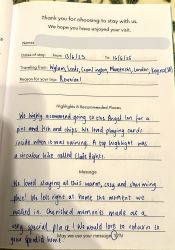 Thank you for choosing to stay with us.
We hope you have enjoyed your visit.
Name:
Dates of stay: From 13/6/25 To 16/6/25
Travelling from: Wylam, Leeds, Cramlington, Manchester, London,
Reason for your trip: Reunion!
Highlights & Recommended Places
We highly recommend going to the Angel Inn for a
pint and fish and chips. We loved playing cards
inside when it was raining. A top highlight was
a circular hike called
Message
We loved staying at this warm, cosy and charming
place! We felt right at home the moment we
walked in. Cherished moments made at a
very special place! We would love to return to
your special home.
May we use your message? Y/N